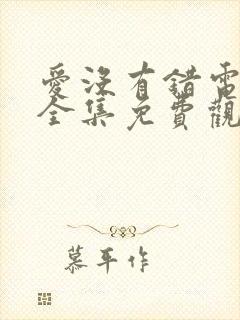 愛沒有錯電
全集免費觀
慕平作